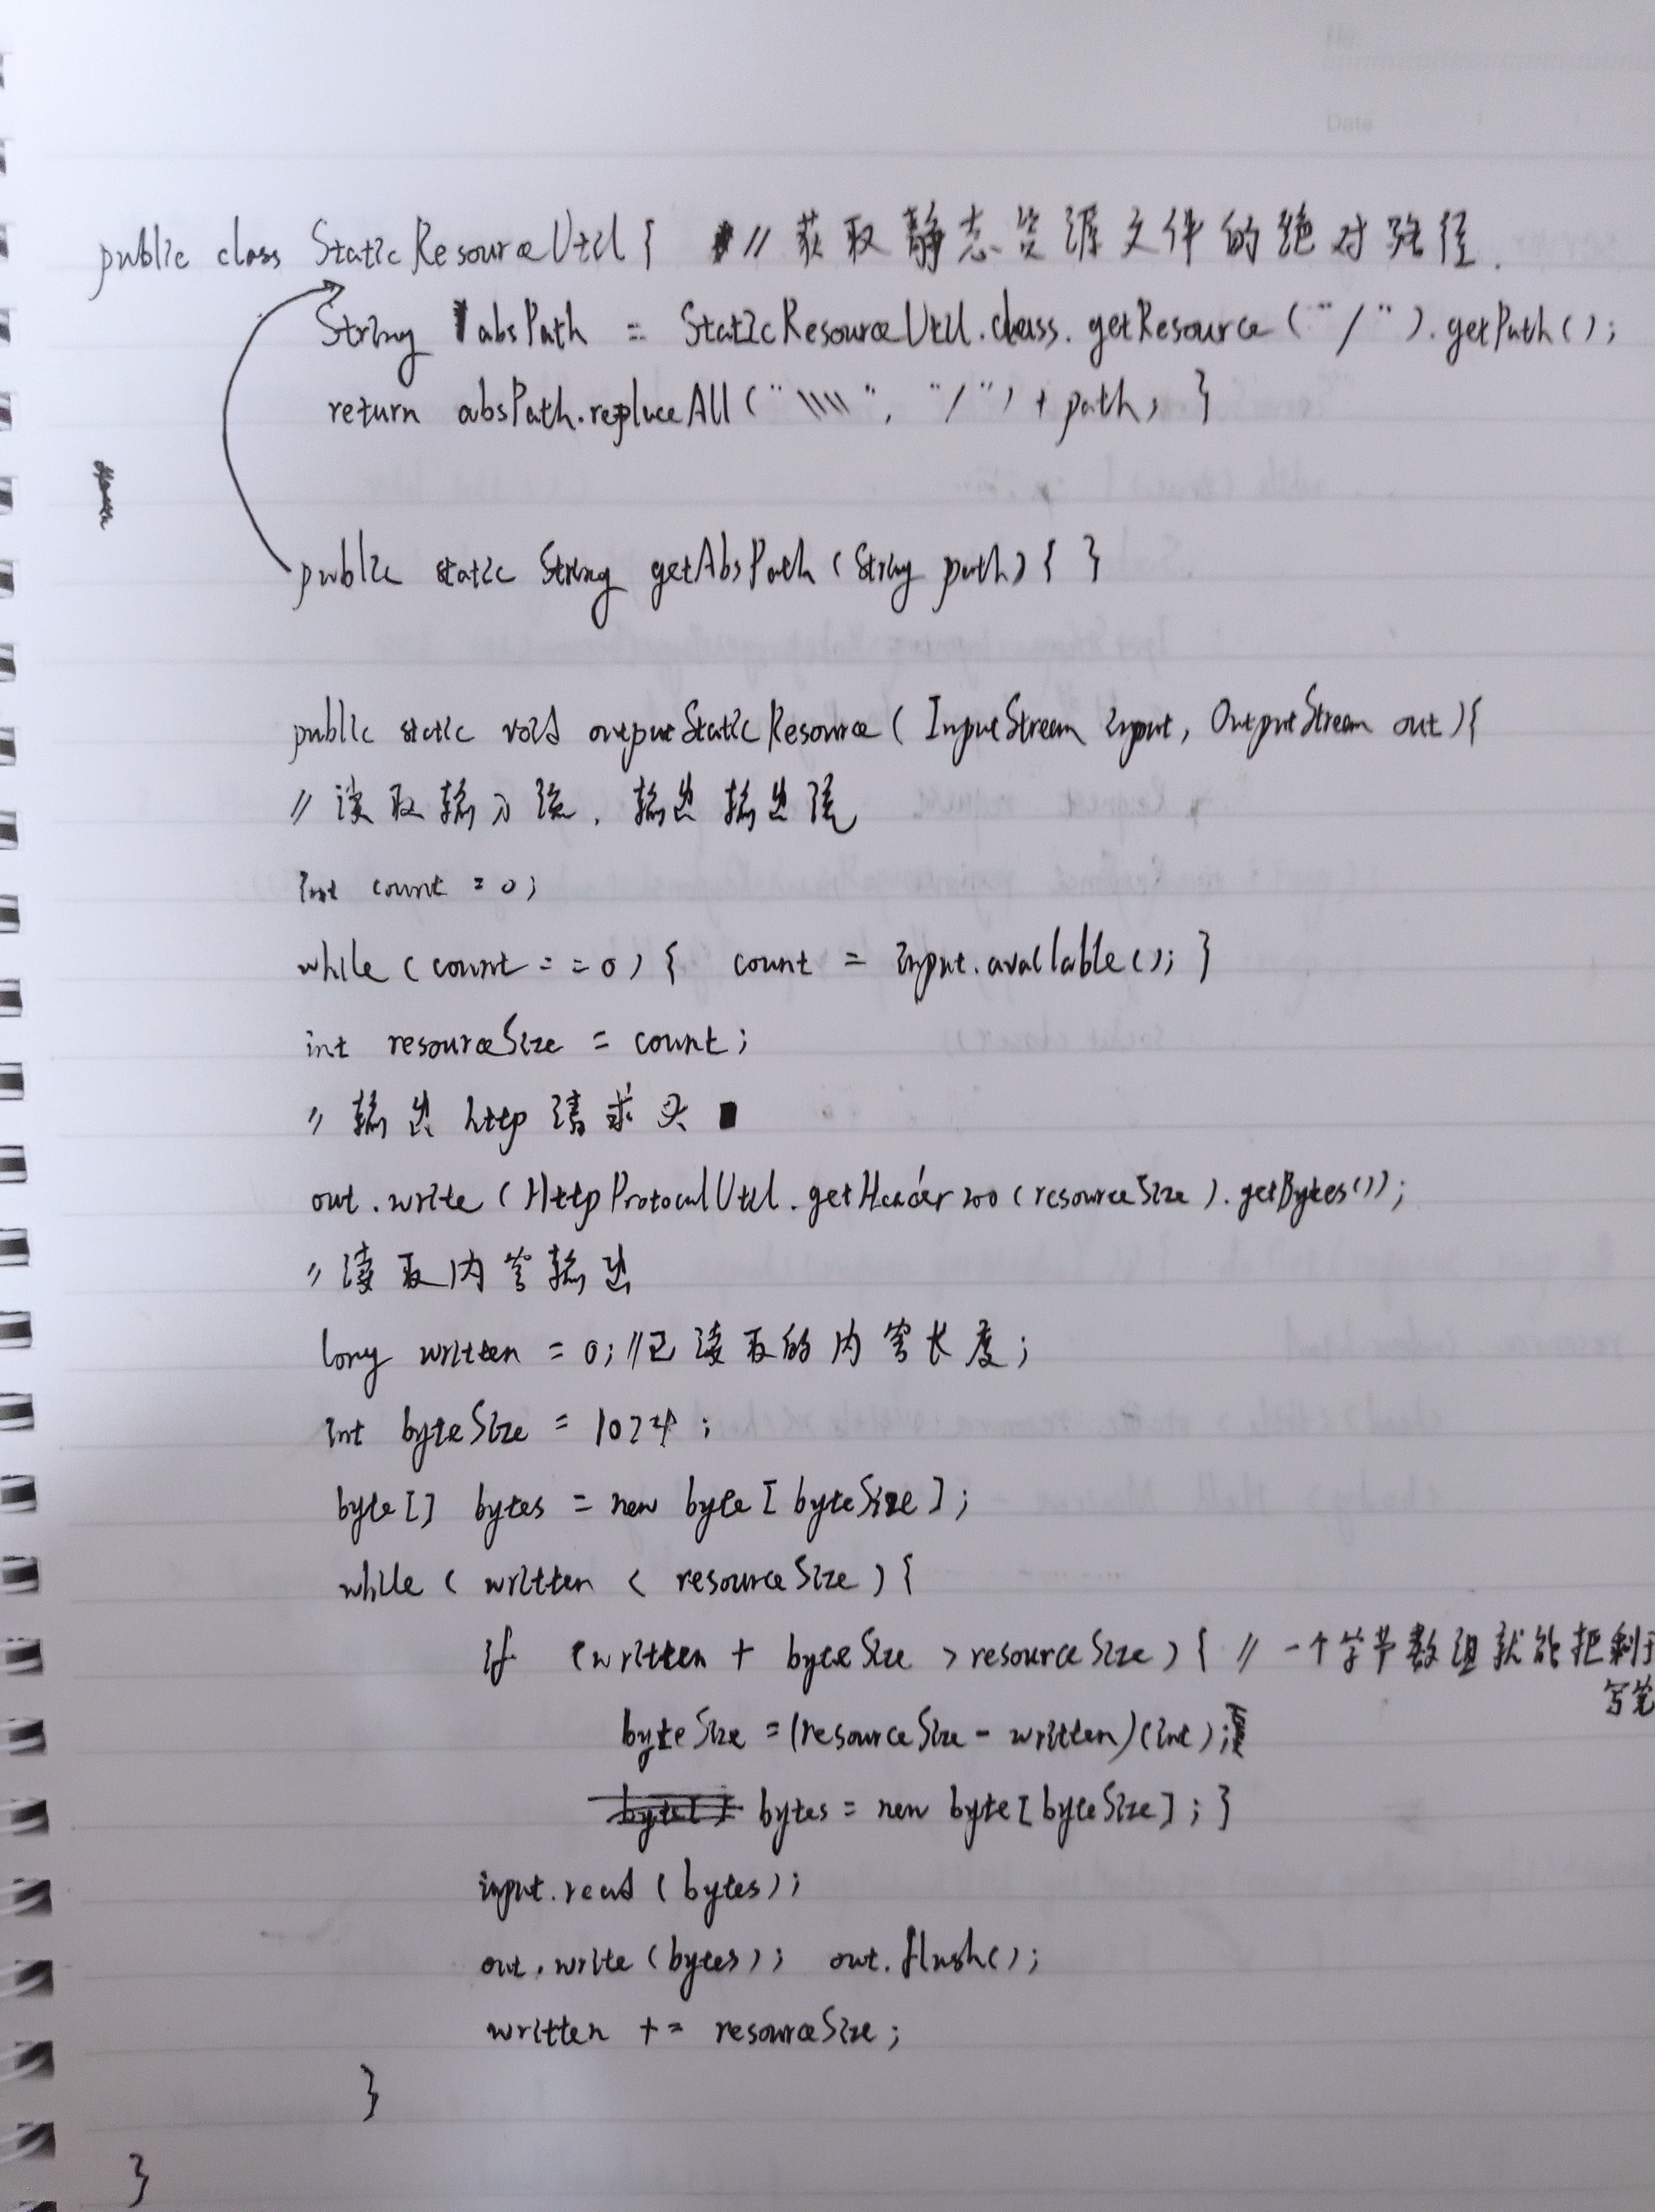 Date
public class StaticResourceUtil { // 获取静态资源文件的绝对路径.
String absPath = StaticResourceUtil.class.getResource("/").getPath();
return absPath.replaceAll("\\\\", "/") + path; }
public static String getAbsPath (String path) { }
public static void outputStaticResource ( InputStream input, OutputStream out ) {
// 读取输入流, 输出输出流
int count = 0;
while (count == 0) { count = input.available(); }
int resourceSize = count;
// 输出 http 请求头
out.write (HttpProtocalUtil.getHeader200 (resourceSize).getBytes());
// 读取内容输出
long written = 0; //已读取的内容长度;
int byteSize = 1024;
byte[] bytes = new byte [ byteSize ];
while ( written < resourceSize ) {
if (written + byteSize > resourceSize ) { // 一个字节数组就能把剩下
写完
byteSize = (resourceSize - written)(int);
byte[] bytes = new byte [ byteSize ]; }
input.read (bytes);
out.write (bytes); out.flush();
written += resourceSize;
}
}